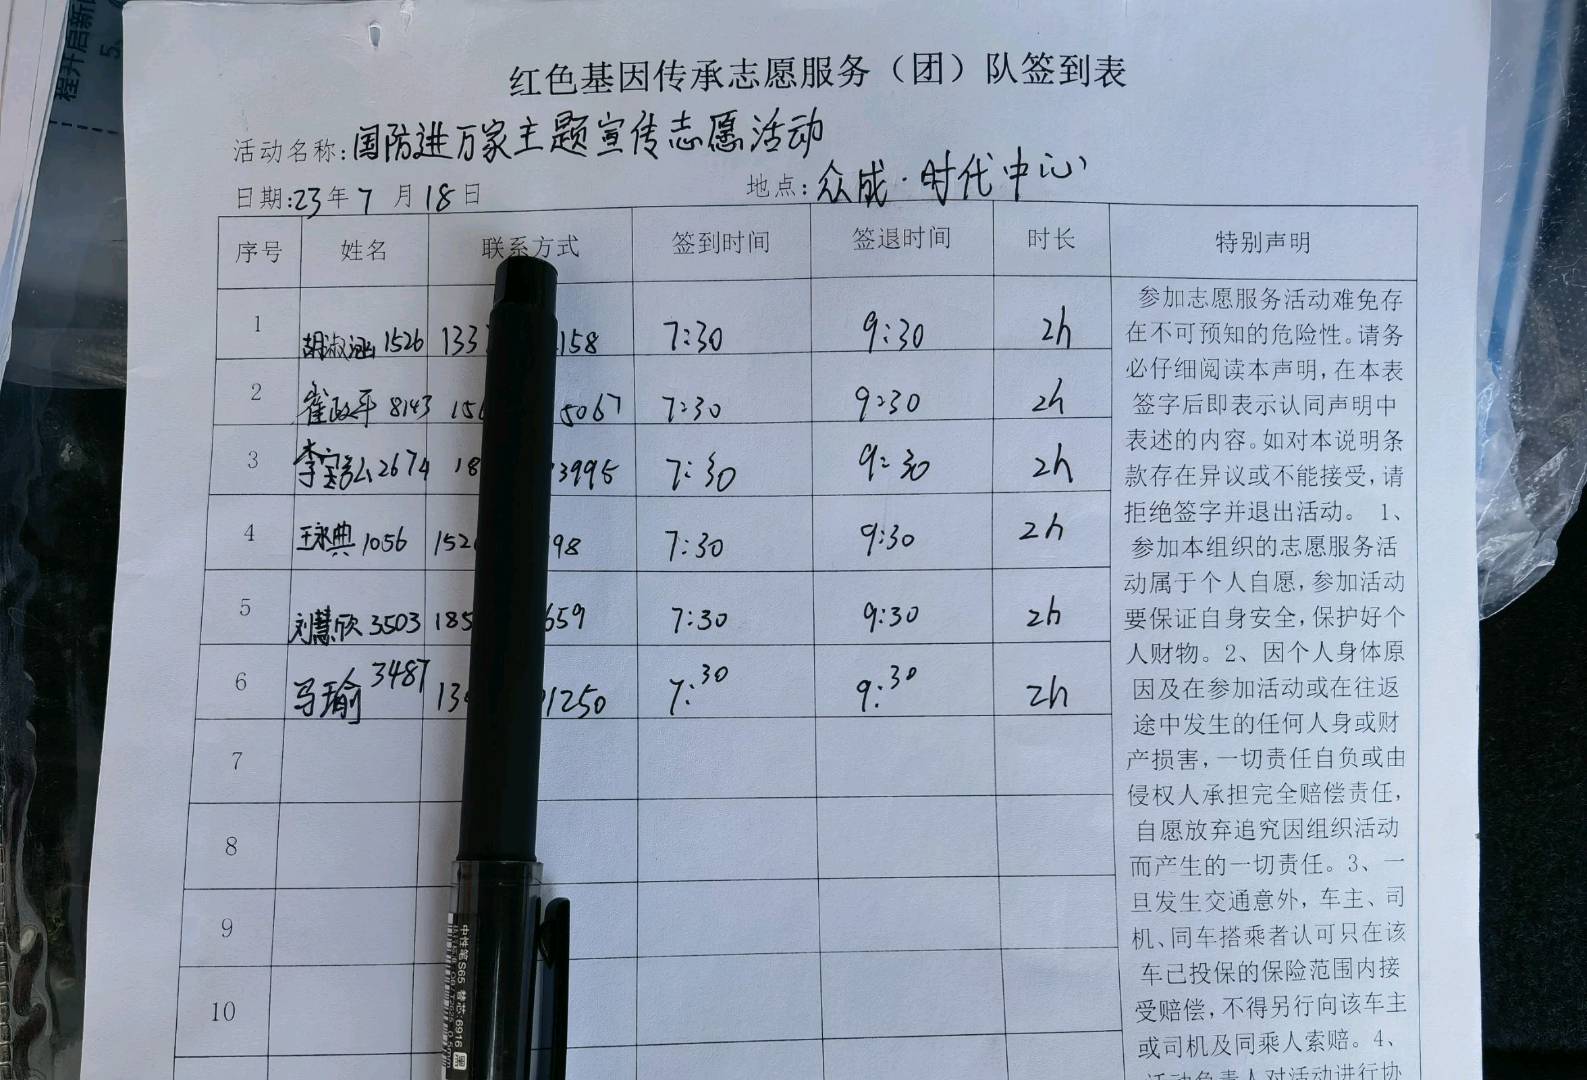 红色基因传承志愿服务（团）队签到表
活动名称:国防进万家主题宣传志愿活动
日期:23年7月18日 地点:众成·时代中心
序号 姓名 联系方式 签到时间 签退时间 时长 特别声明
1 胡淑涵 1526 133 158 7:30 9:30 2h
2 崔政平 8143 156 5067 7:30 9:30 2h
3 李 2674 18 3995 7:30 9:30 2h
4 王永典 1056 152 98 7:30 9:30 2h
5 刘慧欣 3503 185 659 7:30 9:30 2h
6 马瑜 3487 13 1250 7:30 9:30 2h
7
8
9
10
参加志愿服务活动难免存
在不可预知的危险性。请务
必仔细阅读本声明，在本表
签字后即表示认同声明中
表述的内容。如对本说明条
款存在异议或不能接受，请
拒绝签字并退出活动。 1、
参加本组织的志愿服务活
动属于个人自愿，参加活动
要保证自身安全，保护好个
人财物。2、因个人身体原
因及在参加活动或在往返
途中发生的任何人身或财
产损害，一切责任自负或由
侵权人承担完全赔偿责任，
自愿放弃追究因组织活动
而产生的一切责任。3、一
旦发生交通意外，车主、司
机、同车搭乘者认可只在该
车已投保的保险范围内接
受赔偿，不得另行向该车主
或司机及同乘人索赔。4、
活动负责人对活动进行协
中性笔S65 替芯:6916 黑
程开启新
5、